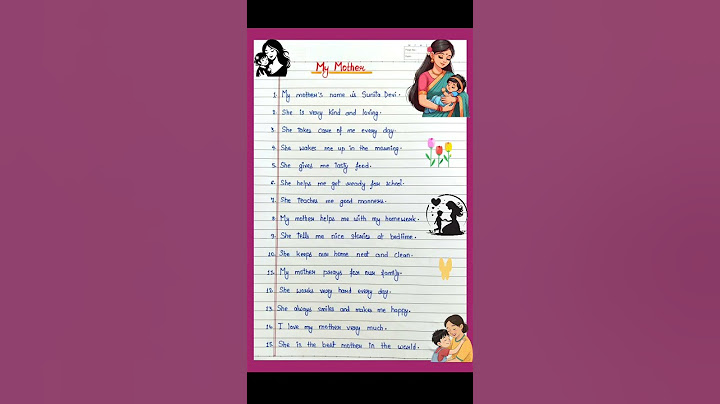 My Mother
1. My mother's name is Sunita Devi.
2. She is very kind and loving.
3. She takes care of me every day.
4. She wakes me up in the morning.
5. She gives me tasty food.
6. She helps me get ready for school.
7. She teaches me good manners.
8. My mother helps me with my homework.
9. She tells me nice stories at bedtime.
10. She keeps our home neat and clean.
11. My mother prays for our family.
12. She works very hard every day.
13. She always smiles and makes me happy.
14. I love my mother very much.
15. She is the best mother in the world.